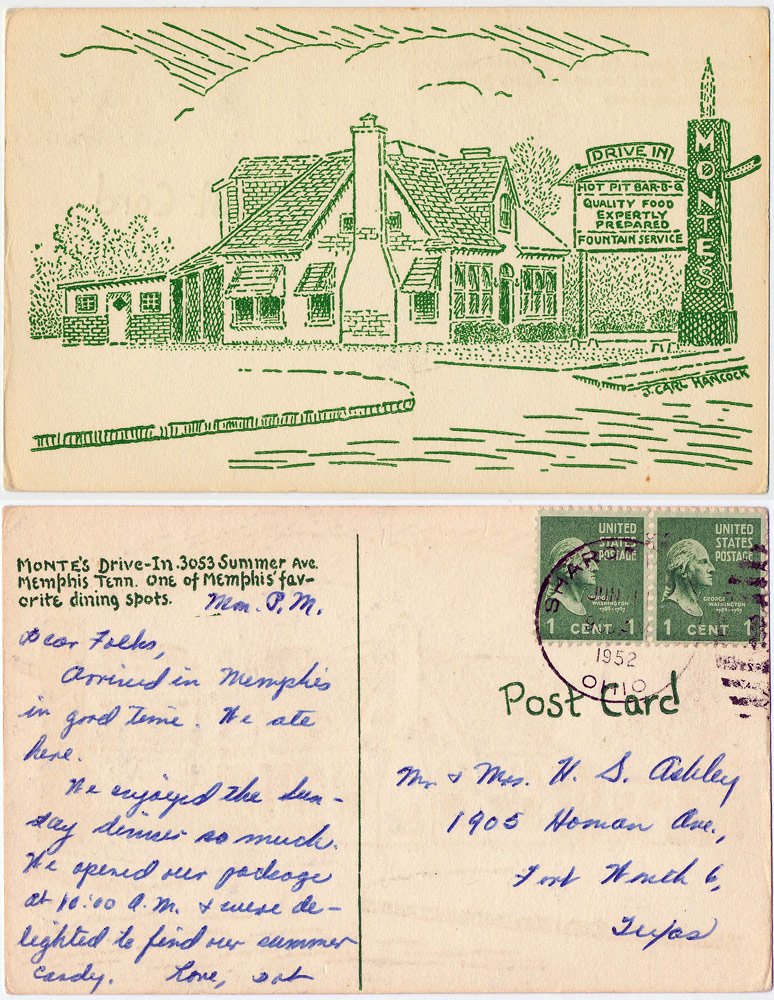 DRIVE IN
HOT PIT BAR-B-Q
QUALITY FOOD
EXPERTLY
PREPARED
FOUNTAIN SERVICE
MONTES
J. CARL HANCOCK
MONTE'S Drive-In. 3053 Summer Ave.
Memphis Tenn. One of Memphis' fav-
orite dining spots.
Mon. P.M.
Dear Folks,
Arrived in Memphis
in good time. We ate
here.
We enjoyed the Sun-
day dinner so much.
We opened our package
at 10:00 A.M. & were de-
lighted to find our summer
candy. Love,
UNITED
STATES
POSTAGE
GEORGE
WASHINGTON
1789-1797
1 CENT 1
UNITED
STATES
POSTAGE
GEORGE
WASHINGTON
1789-1797
1 CENT 1
JUN
1952
OHIO
Post Card
Mr. & Mrs. H. S. Ashley
1905 Homan Ave.,
Fort Worth 6,
Texas